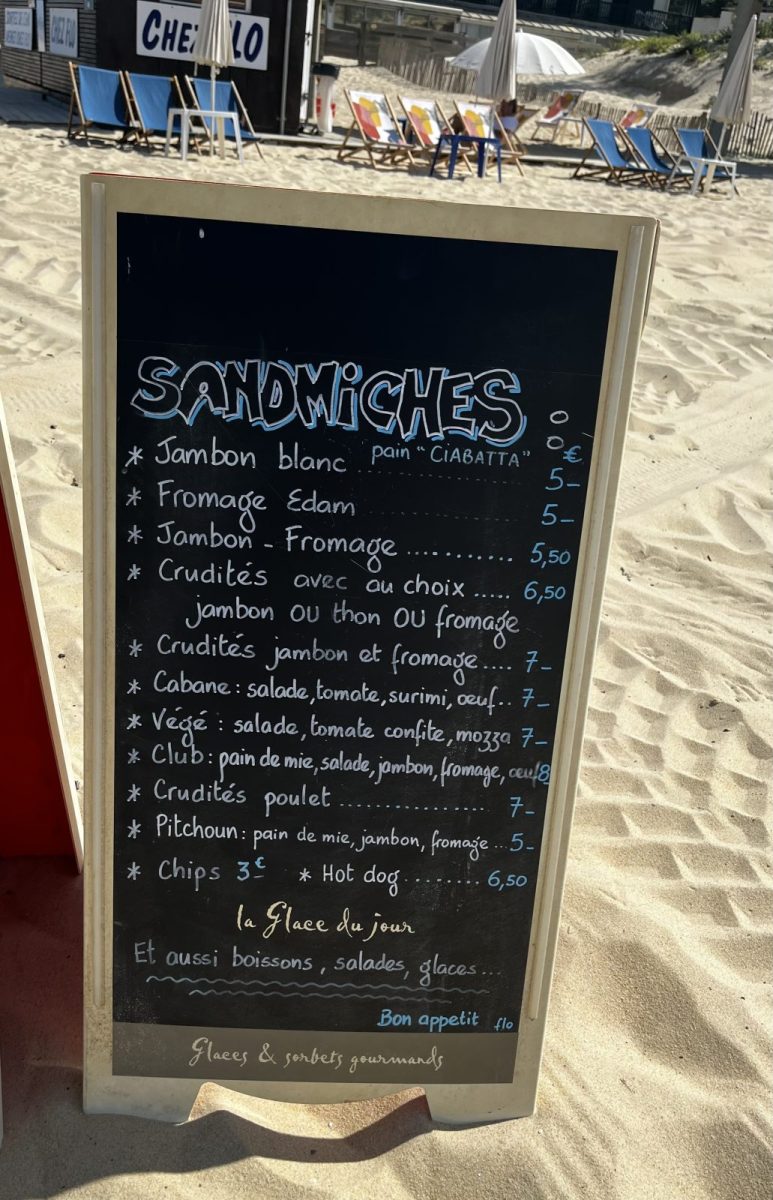 CHEZ FLO
CHEZ FLO
SANDWICHES
* Jambon blanc pain "CIABATTA" € 5-
* Fromage Edam 5-
* Jambon - Fromage .......... 5,50
* Crudités avec au choix ..... 6,50
jambon OU thon OU fromage
* Crudités jambon et fromage.... 7-
* Cabane : salade, tomate, surimi, œuf.. 7-
* Végé : salade, tomate confite, mozza 7-
* Club : pain de mie, salade, jambon, fromage, œuf 8
* Crudités poulet .................. 7-
* Pitchoun : pain de mie, jambon, fromage ...5-
* Chips 3€ * Hot dog ........ 6,50
la Glace du jour
Et aussi boissons, salades, glaces...
Bon appetit flo
Glaces & sorbets gourmands